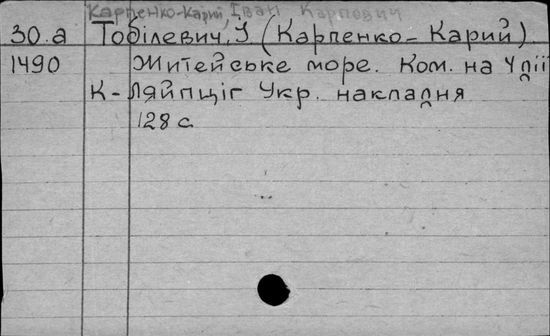 Карпенко-Карий Іван Карпович
30.а Тобілевич, І (Карпенко-Карий)
1490 Житейське море. Ком. на 4 дії
К-Ляйпціг Укр. накладня
128 с.